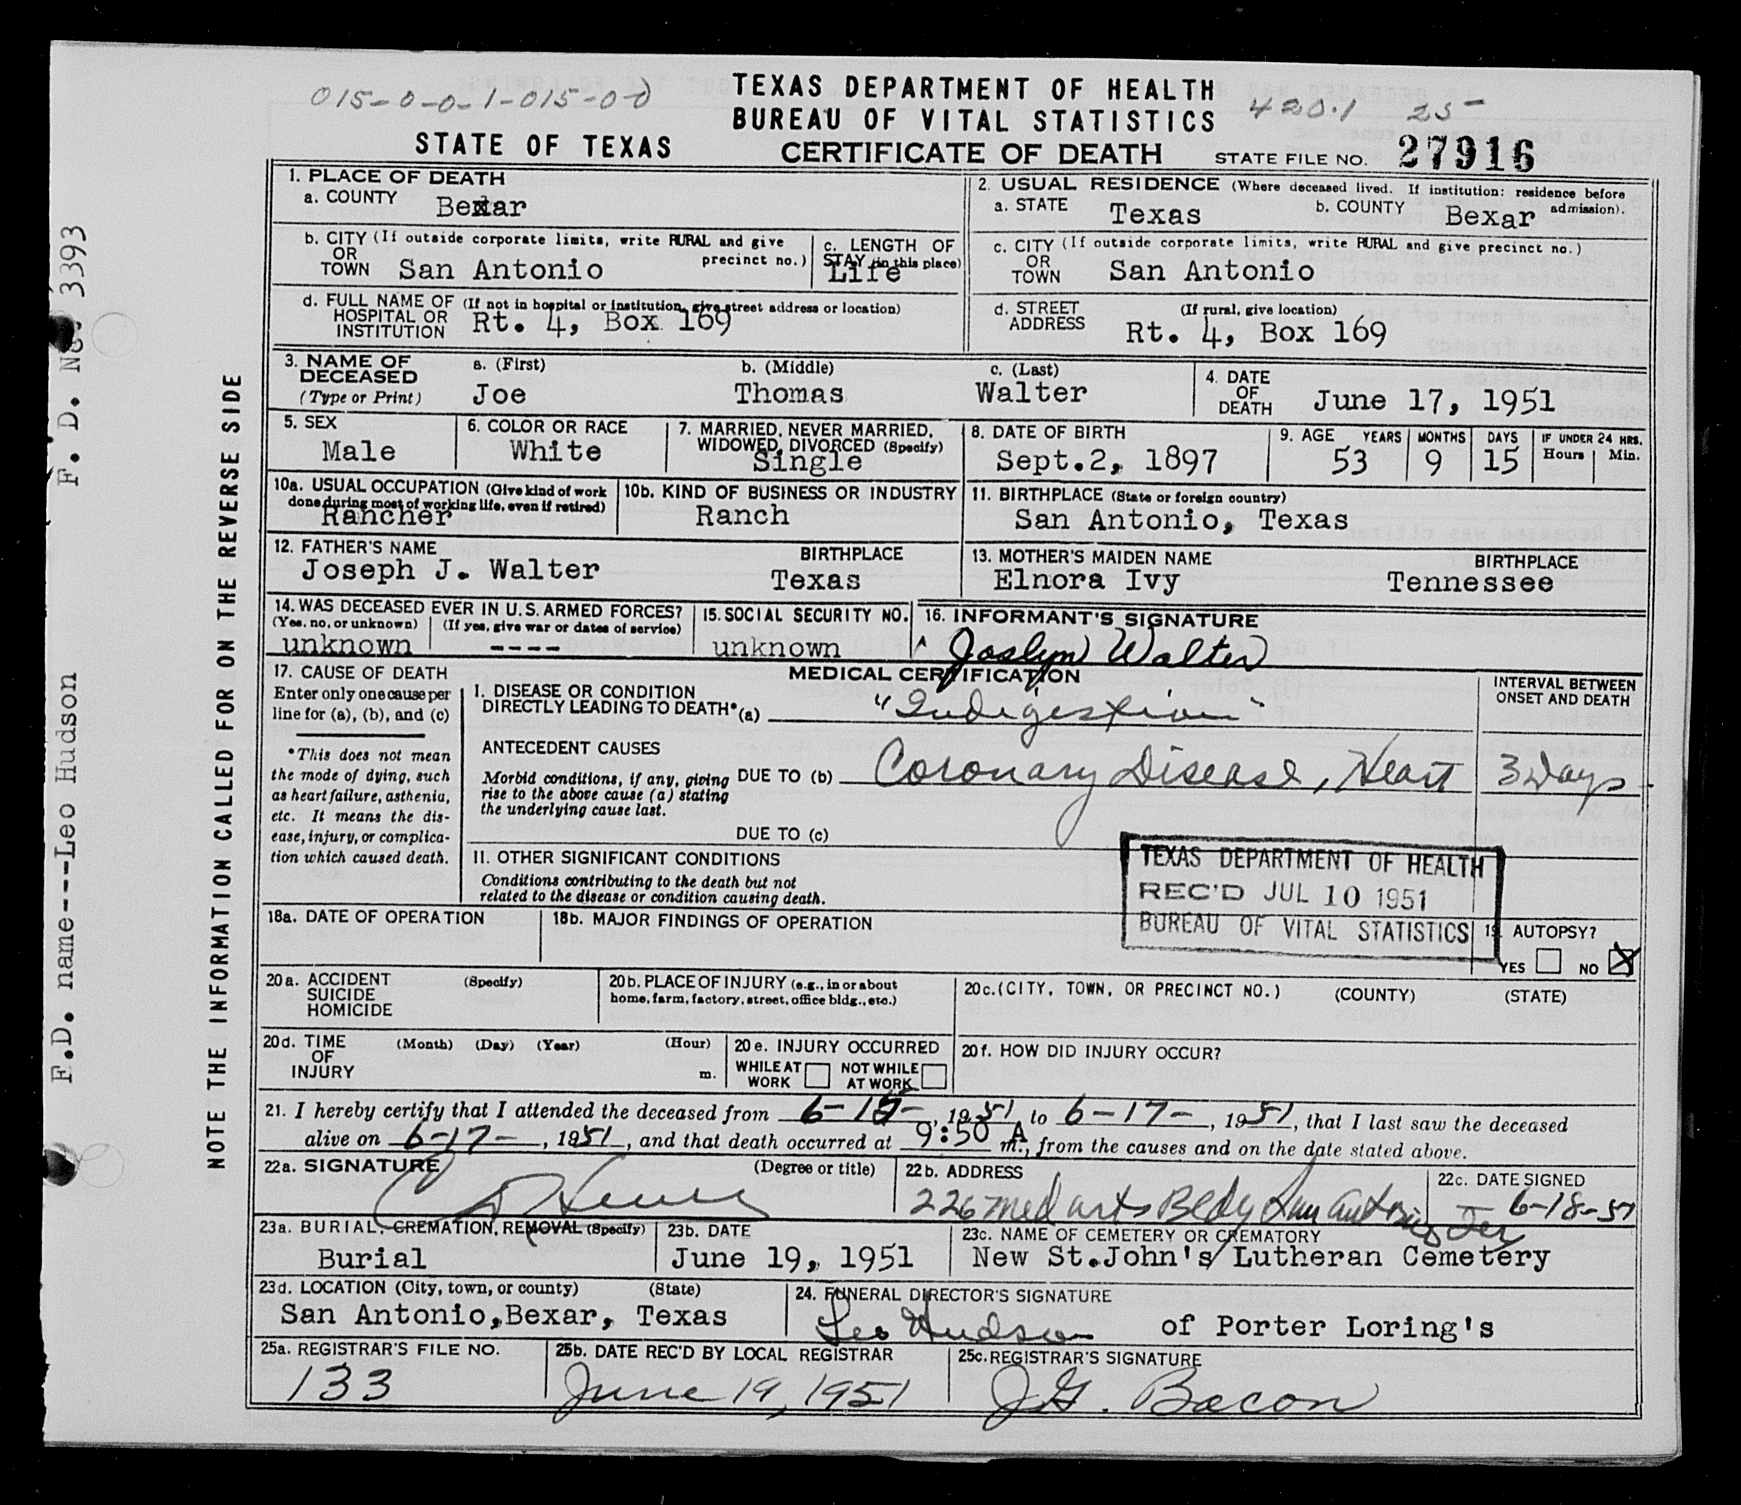 015-0-0-1-015-00
TEXAS DEPARTMENT OF HEALTH
BUREAU OF VITAL STATISTICS
420.1 25-
STATE OF TEXAS
CERTIFICATE OF DEATH
STATE FILE NO. 27916
1. PLACE OF DEATH
a. COUNTY Bexar
2. USUAL RESIDENCE (Where deceased lived. If institution: residence before admission).
a. STATE Texas b. COUNTY Bexar
b. CITY (If outside corporate limits, write RURAL and give precinct no.)
OR
TOWN San Antonio
c. LENGTH OF
STAY (in this place)
Life
c. CITY (If outside corporate limits, write RURAL and give precinct no.)
OR
TOWN San Antonio
d. FULL NAME OF (If not in hospital or institution, give street address or location)
HOSPITAL OR
INSTITUTION Rt. 4, Box 169
d. STREET (If rural, give location)
ADDRESS Rt. 4, Box 169
3. NAME OF
DECEASED
(Type or Print)
a. (First) b. (Middle) c. (Last)
Joe Thomas Walter
4. DATE
OF
DEATH June 17, 1951
5. SEX
Male
6. COLOR OR RACE
White
7. MARRIED, NEVER MARRIED,
WIDOWED, DIVORCED (Specify)
Single
8. DATE OF BIRTH
Sept.2, 1897
9. AGE YEARS MONTHS DAYS IF UNDER 24 HRS.
Hours Min.
53 9 15
10a. USUAL OCCUPATION (Give kind of work
done during most of working life, even if retired)
Rancher
10b. KIND OF BUSINESS OR INDUSTRY
Ranch
11. BIRTHPLACE (State or foreign country)
San Antonio, Texas
12. FATHER'S NAME BIRTHPLACE
Joseph J. Walter Texas
13. MOTHER'S MAIDEN NAME BIRTHPLACE
Elnora Ivy Tennessee
14. WAS DECEASED EVER IN U.S. ARMED FORCES?
(Yes, no, or unknown) (If yes, give war or dates of service)
unknown ----
15. SOCIAL SECURITY NO.
unknown
16. INFORMANT'S SIGNATURE
Joslyn Walter
17. CAUSE OF DEATH
Enter only one cause per
line for (a), (b), and (c)
*This does not mean
the mode of dying, such
as heart failure, asthenia,
etc. It means the dis-
ease, injury, or complica-
tion which caused death.
MEDICAL CERTIFICATION
INTERVAL BETWEEN
ONSET AND DEATH
I. DISEASE OR CONDITION
DIRECTLY LEADING TO DEATH* (a) "Indigestion"
ANTECEDENT CAUSES
Morbid conditions, if any, giving
rise to the above cause (a) stating
the underlying cause last.
DUE TO (b) Coronary Disease, Heart 3 Days
DUE TO (c)
II. OTHER SIGNIFICANT CONDITIONS
Conditions contributing to the death but not
related to the disease or condition causing death.
TEXAS DEPARTMENT OF HEALTH
REC'D JUL 10 1951
BUREAU OF VITAL STATISTICS
18a. DATE OF OPERATION
18b. MAJOR FINDINGS OF OPERATION
19. AUTOPSY?
YES NO X
20a. ACCIDENT (Specify)
SUICIDE
HOMICIDE
20b. PLACE OF INJURY (e.g., in or about
home, farm, factory, street, office bldg., etc.)
20c. (CITY, TOWN, OR PRECINCT NO.) (COUNTY) (STATE)
20d. TIME (Month) (Day) (Year) (Hour)
OF
INJURY m.
20e. INJURY OCCURRED
WHILE AT WORK NOT WHILE AT WORK
20f. HOW DID INJURY OCCUR?
21. I hereby certify that I attended the deceased from 6-15-, 1951, to 6-17-, 1951, that I last saw the deceased
alive on 6-17-, 1951, and that death occurred at 9:50 A m., from the causes and on the date stated above.
22a. SIGNATURE (Degree or title)
22b. ADDRESS
226 Med arts Bldg San Antonio Tex
22c. DATE SIGNED
6-18-51
23a. BURIAL, CREMATION, REMOVAL (Specify)
Burial
23b. DATE
June 19, 1951
23c. NAME OF CEMETERY OR CREMATORY
New St.John's Lutheran Cemetery
23d. LOCATION (City, town, or county) (State)
San Antonio,Bexar, Texas
24. FUNERAL DIRECTOR'S SIGNATURE
Leo Hudson of Porter Loring's
25a. REGISTRAR'S FILE NO.
133
25b. DATE REC'D BY LOCAL REGISTRAR
June 19, 1951
25c. REGISTRAR'S SIGNATURE
J.G. Bacon
NOTE THE INFORMATION CALLED FOR ON THE REVERSE SIDE
F.D. name---Leo Hudson F. D. No. 3393